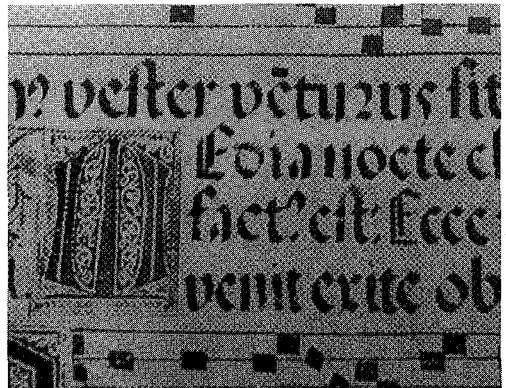 nꝰ veſter vēturus ſit
MEdia nocte cl
factꝰ eſt: Ecce
venit exite ob